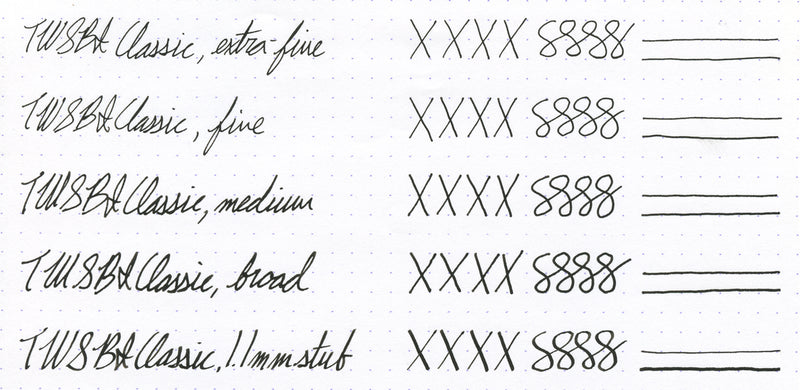 TWSBI Classic, extra-fine XXXX 8888
TWSBI Classic, fine XXXX 8888
TWSBI Classic, medium XXXX 8888
TWSBI Classic, broad XXXX 8888
TWSBI Classic, 1.1mm stub XXXX 8888